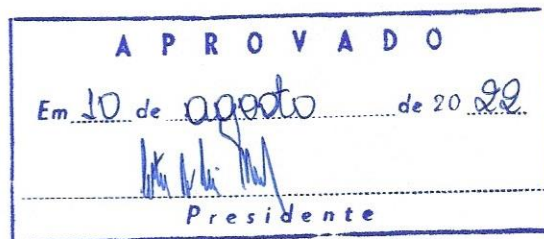 APROVADO
Em 10 de agosto de 2022
Presidente